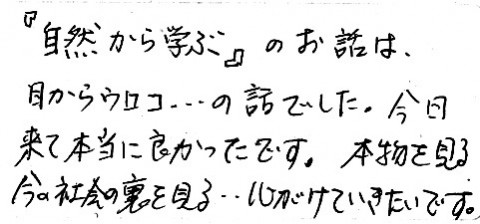 『自然から学ぶ』のお話は、
目からウロコ...の話でした。今日
来て本当に良かったです。本物を見る
今の社会の裏を見る‥心がけていきたいです。